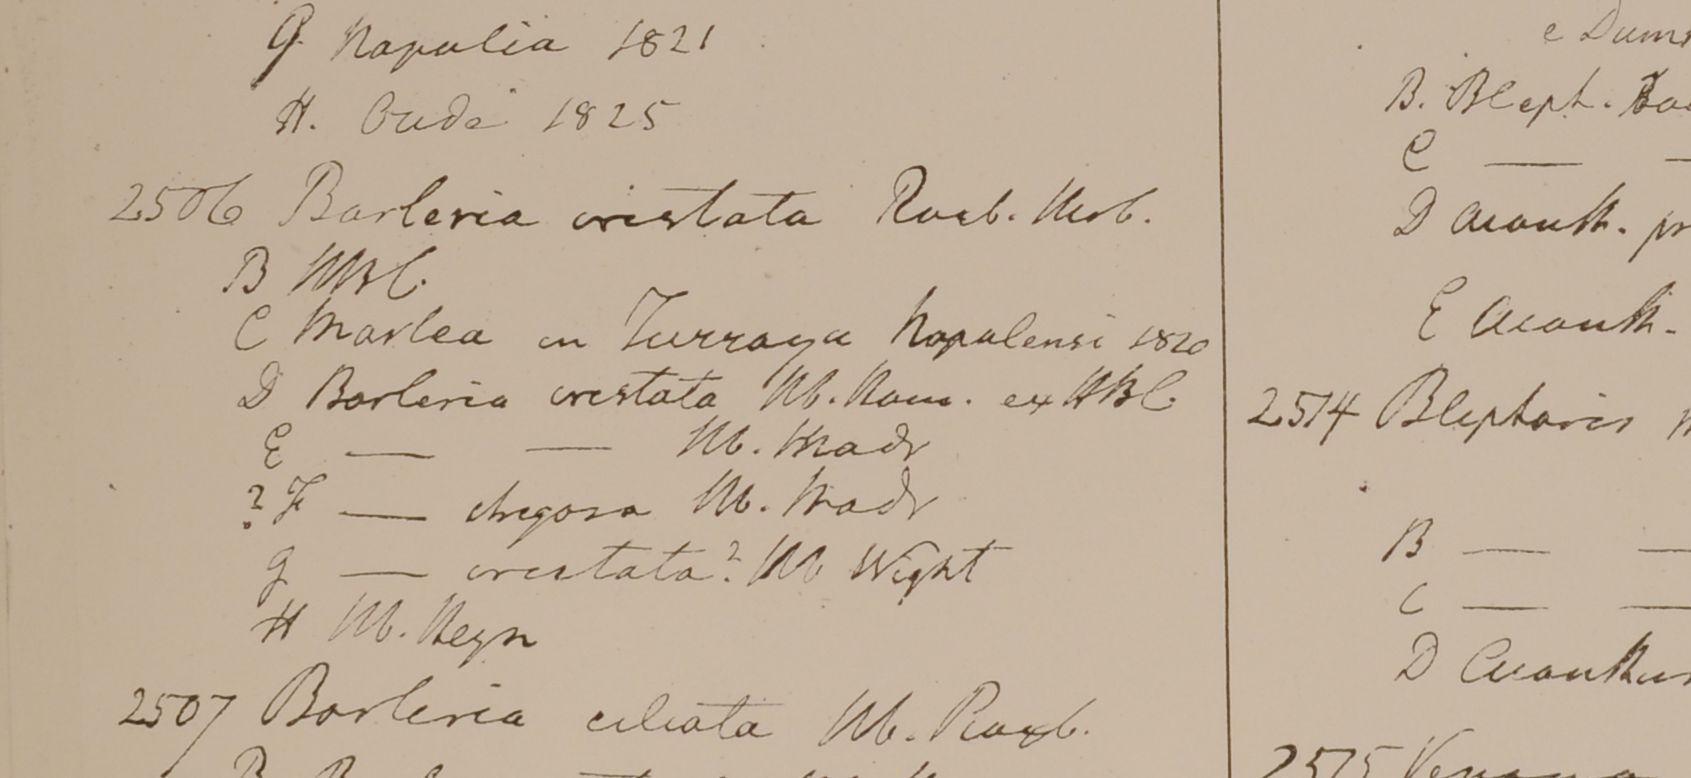 G Napalia 1821
H. Oude 1825
2506 Barleria cristata Roxb. Herb.
B HBC.
C Marlea in Turraya Napalensi 1820
D Barleria cristata Hb. Ham. ex HBC
E — — Hb. Madr
? F — Hb. Madr
G — cristata? Hb Wight
H Hb. Heyn
2507 Barleria ciliata Hb. Roxb.
B
e
B. Bleph.
C — —
D Acanth.
E Acanth.
2514 Blepharis
B — —
C — —
D Acanthus
2515